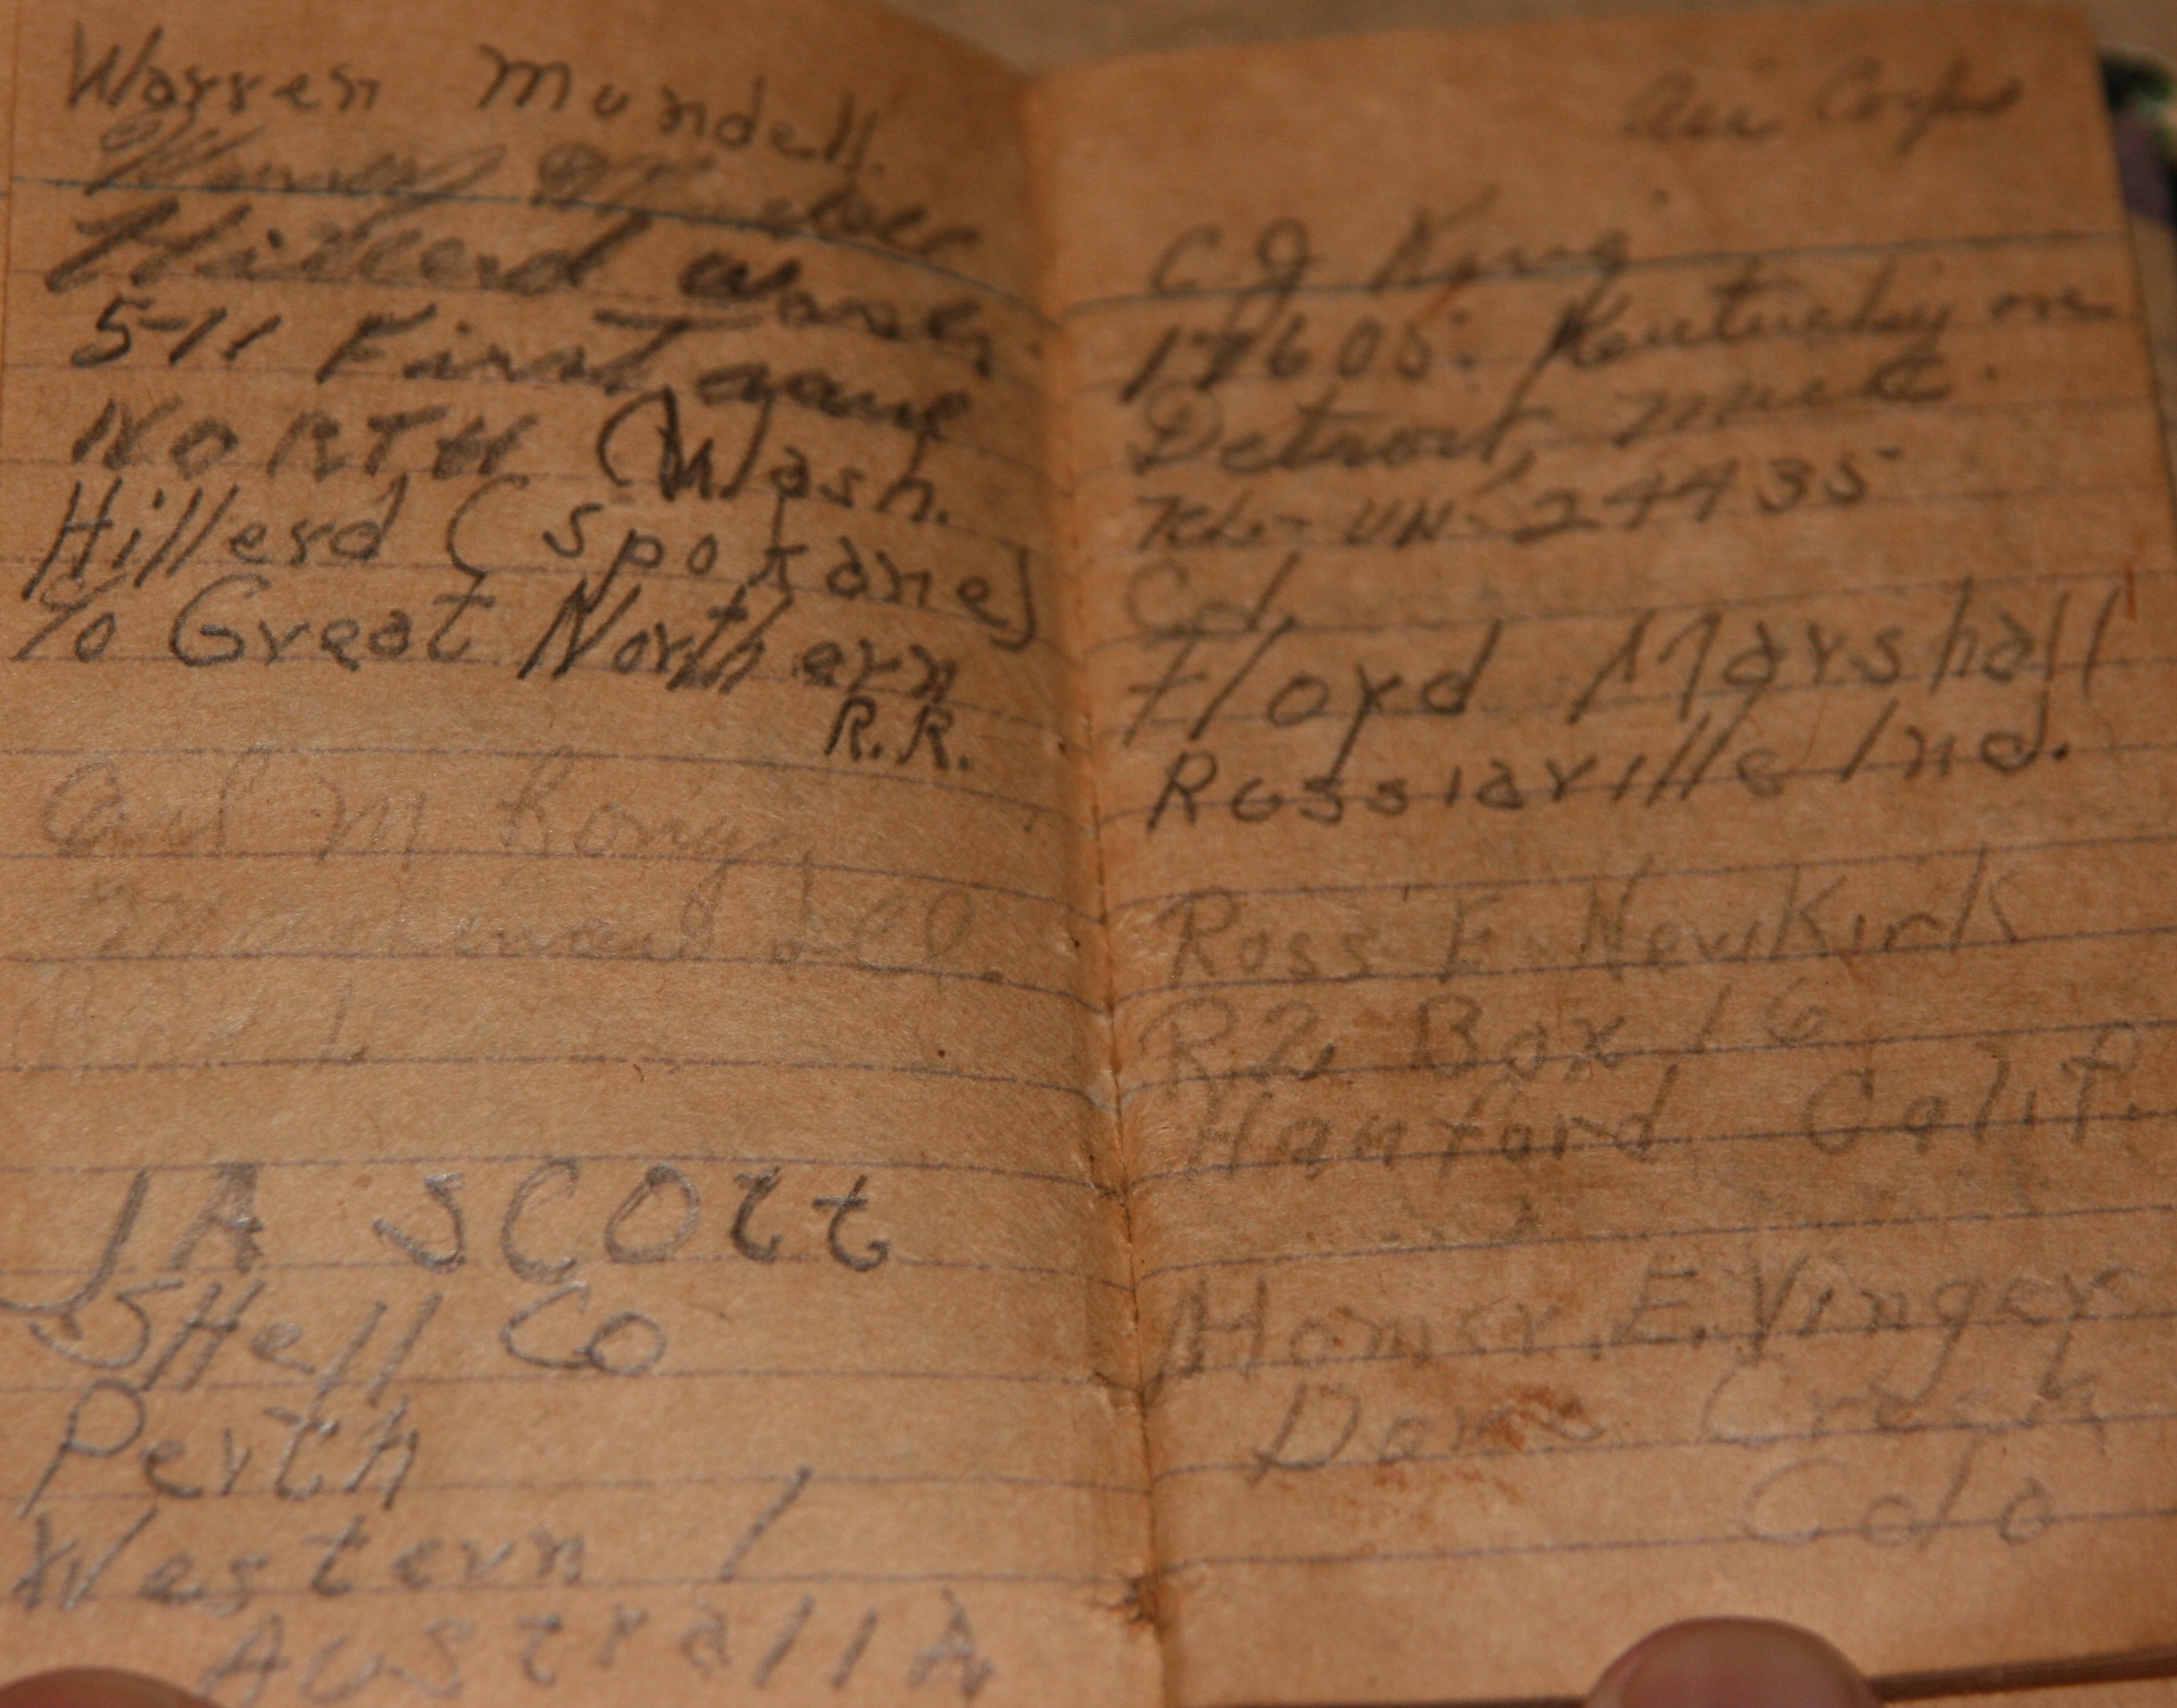 Warren Mundell.
Hillerd Wash.
511 First ave
NORTH (Wash.
Hillerd (Spokane)
℅ Great Northern
R.R.
M
JA SCOtt
SHell Co
Perth
Western
AustrallIA
Air Corps
C J King
17605 Kentucky ave
Detroit, Mich.
UN-
Col.
Floyd Marshall
Russiaville Ind.
Ross E Newkirk
R2, Box 16
Hanford Calif.
Homer E. Vinger
Creek
Colo